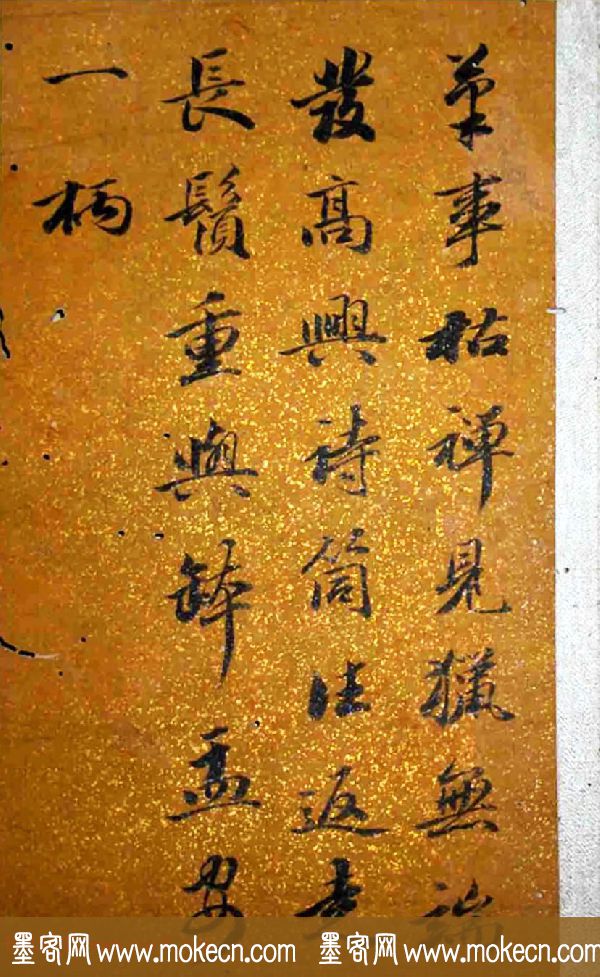 事枯禪見獵無端
發高興詩筒往返
長鬚重與鉢盂安
一柄
墨客网 www.mokecn.com 墨客网 www.mokecn.com